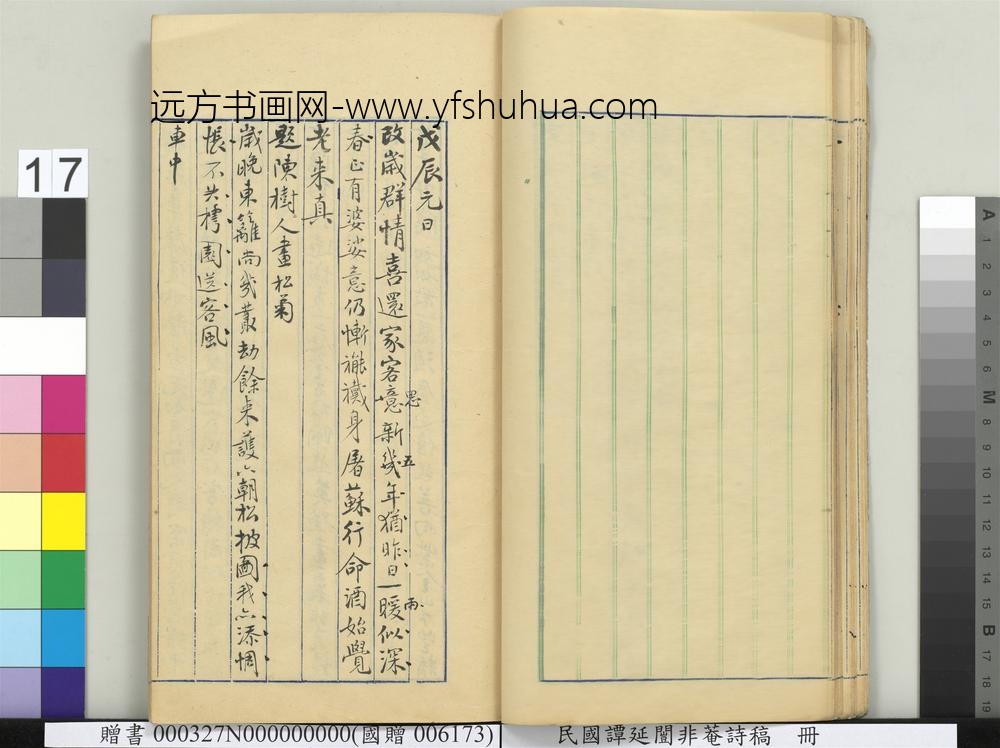 远方书画网-www.yfshuhua.com
戊辰元日
改歲群情喜還家客意新幾年猶昨日一暖似深
思
五
兩
春正有婆娑意仍慚襤襶身屠蘇行命酒始覺
老来真
題陳樹人畫松菊
歲晚東籬尚幾叢劫餘來護六朝松披圖我亦添惆
悵不共樗園送客風
車中
17
A
1
2
3
4
5
6
M
8
9
10
11
12
13
14
15
B
17
18
19
贈書 000327N000000000(國贈 006173)
民國譚延闓非菴詩稿 冊